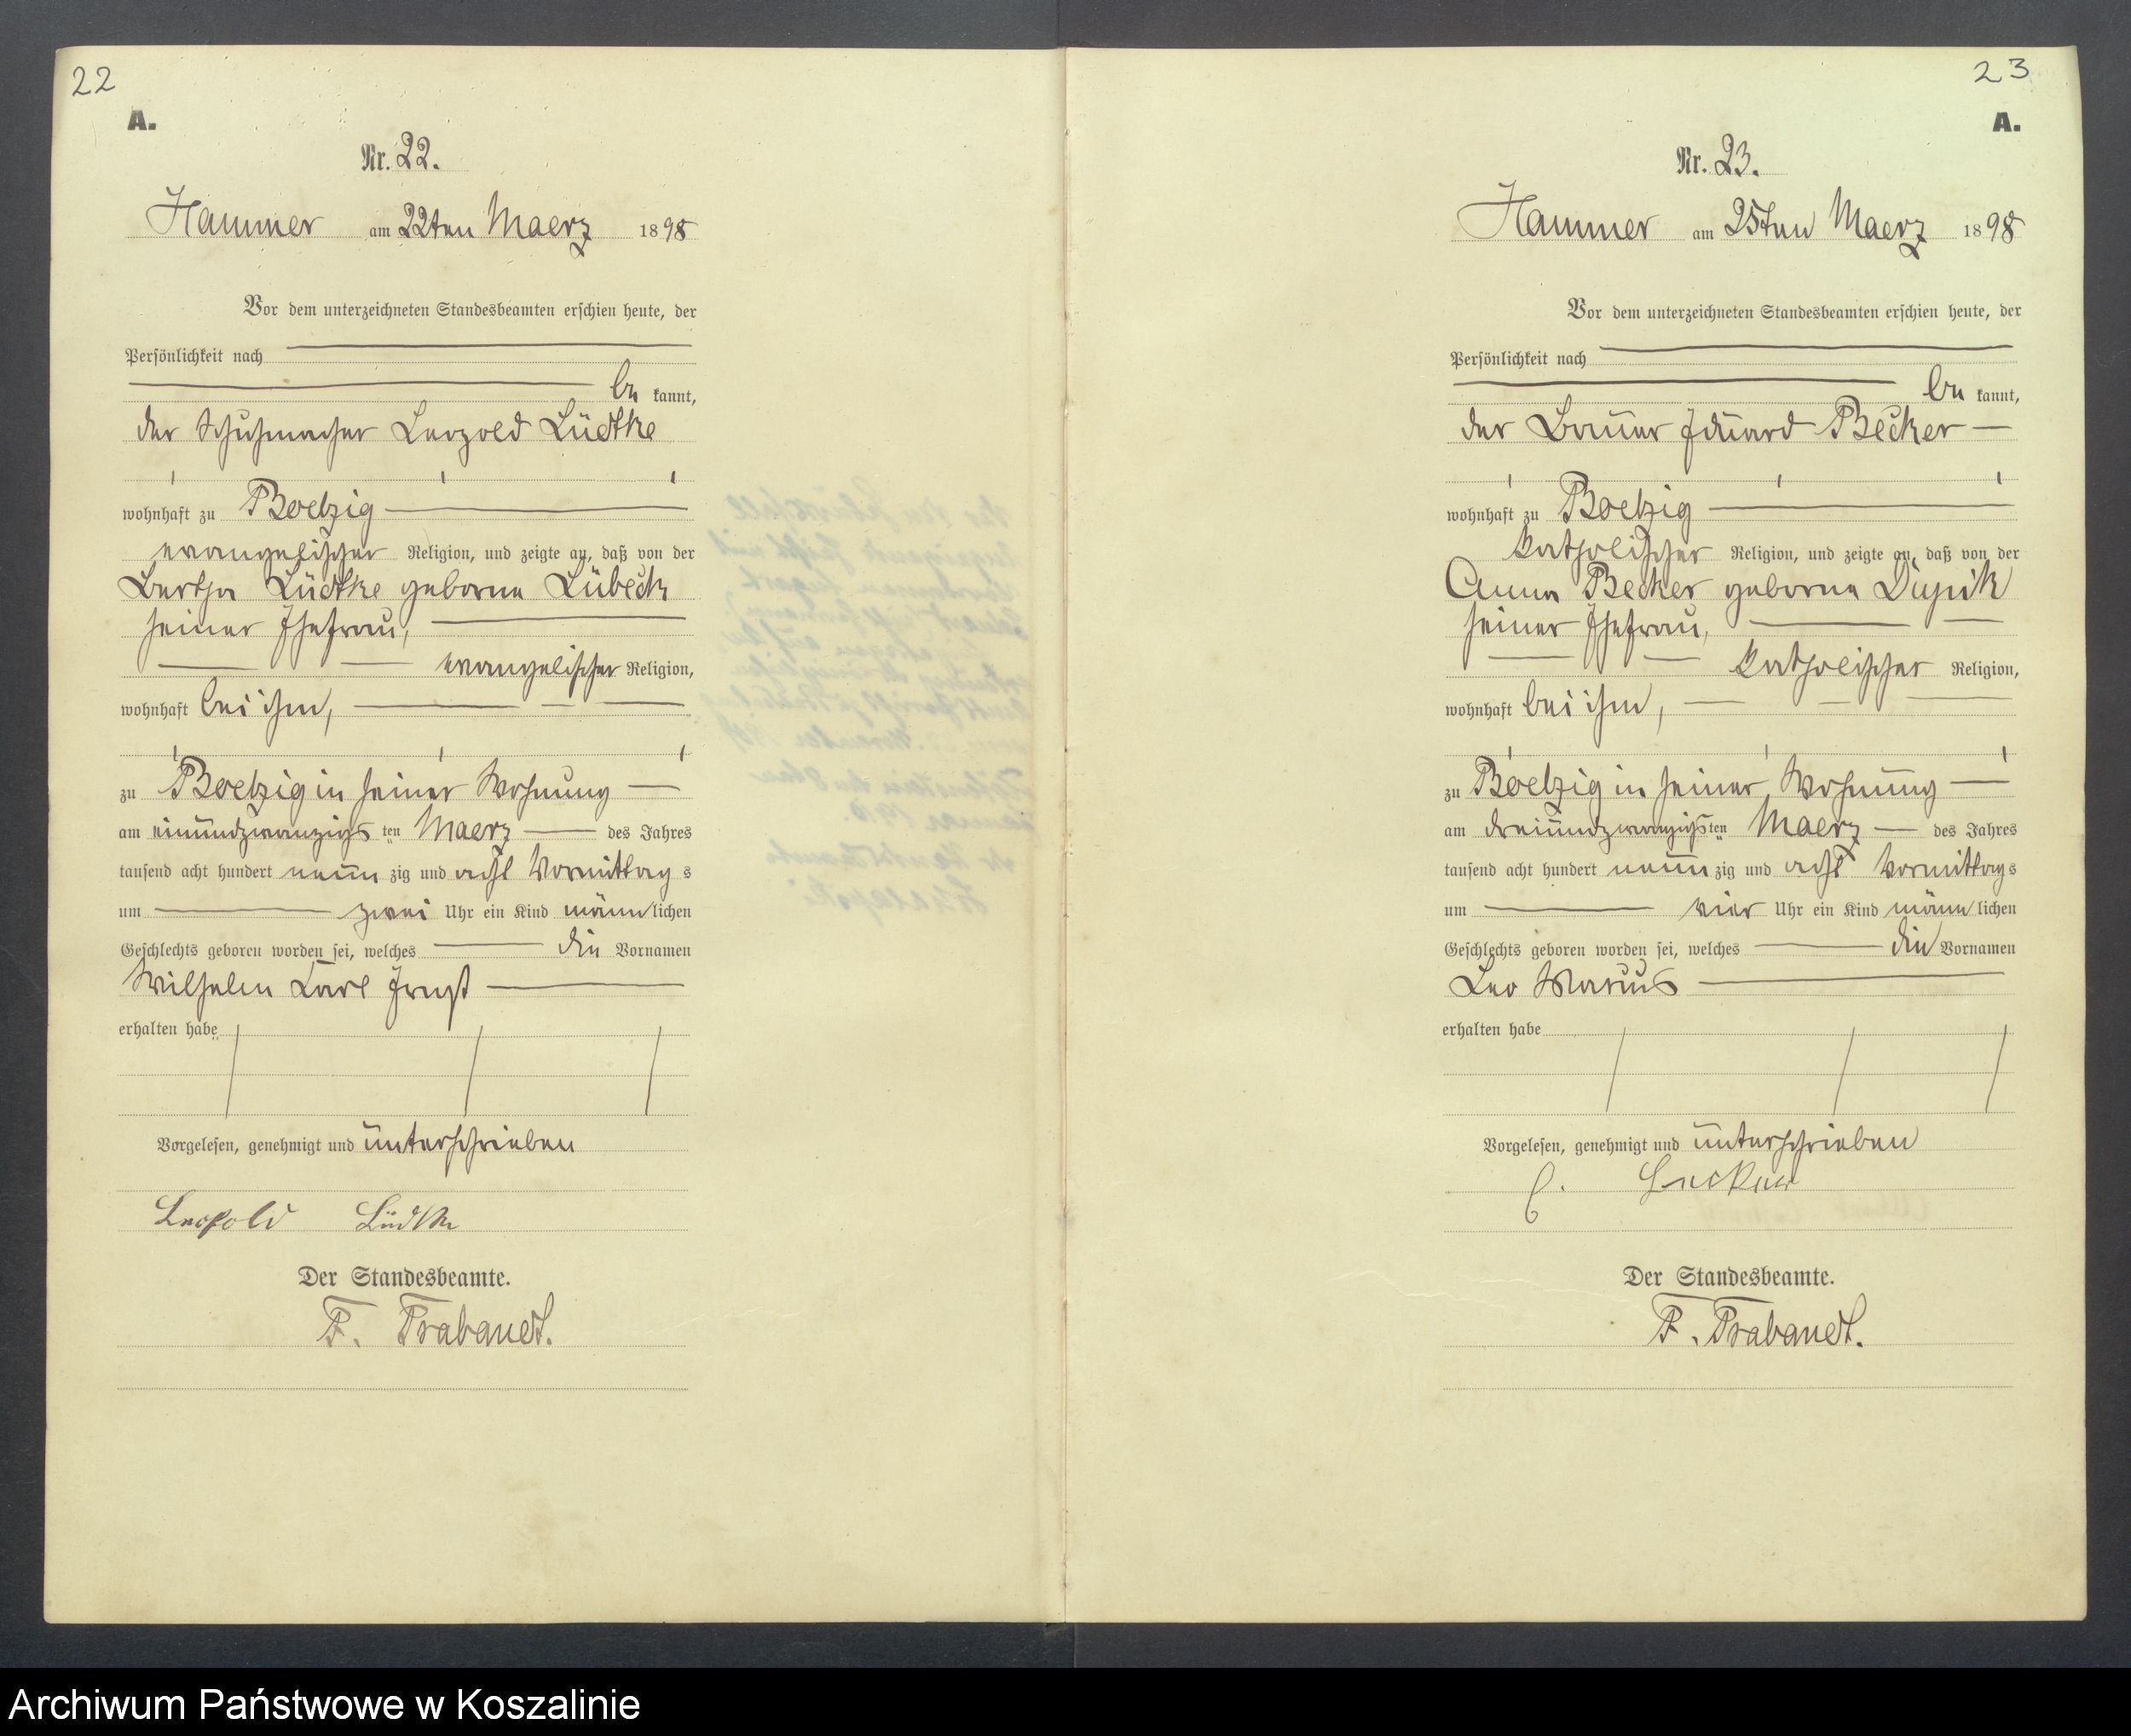 22
A.
Nr. 22.
Hammer am 22ten Maerz 1898
Vor dem unterzeichneten Standesbeamten erschien heute, der
Persönlichkeit nach
be kannt,
der Schuhmacher Leopold Lüdtke
wohnhaft zu Boetzig
evangelischer Religion, und zeigte an, daß von der
Bertha Lüdtke geborne Lübeck
seiner Ehefrau,
evangelischer Religion,
wohnhaft bei ihm,
zu Boetzig in seiner Wohnung
am einundzwanzigs ten Maerz des Jahres
tausend acht hundert neun zig und acht Vormittag s
um zwei Uhr ein Kind männ lichen
Geschlechts geboren worden sei, welches die Vornamen
Wilhelm Karl Ernst
erhalten habe
Vorgelesen, genehmigt und unterschrieben
Leopold Lüdtke
Der Standesbeamte.
F. Trabandt.
23
A.
Nr. 23.
Hammer am 25ten Maerz 1898
Vor dem unterzeichneten Standesbeamten erschien heute, der
Persönlichkeit nach
be kannt,
der Bauer Eduard Becker
wohnhaft zu Boetzig
katholischer Religion, und zeigte an, daß von der
Anna Becker geborne
seiner Ehefrau,
katholischer Religion,
wohnhaft bei ihm,
zu Boetzig in seiner Wohnung
am dreiundzwanzigs ten Maerz des Jahres
tausend acht hundert neun zig und acht Vormittag s
um vier Uhr ein Kind männ lichen
Geschlechts geboren worden sei, welches die Vornamen
Leo
erhalten habe
Vorgelesen, genehmigt und unterschrieben
E. Becker
Der Standesbeamte.
F. Trabandt.
Archiwum Państwowe w Koszalinie